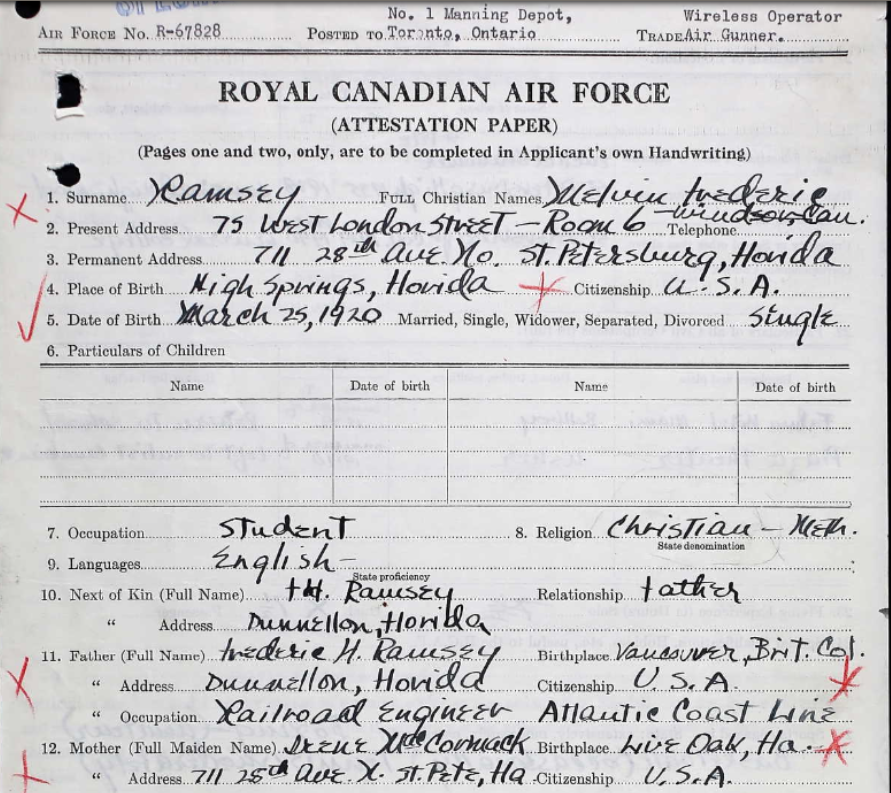 No. 1 Manning Depot, Wireless Operator
AIR FORCE NO. R-67828 POSTED TO Toronto, Ontario TRADE Air Gunner.
ROYAL CANADIAN AIR FORCE
(ATTESTATION PAPER)
(Pages one and two, only, are to be completed in Applicant's own Handwriting)
1. Surname Ramsey FULL Christian Names Melvin Frederic
2. Present Address 75 West London Street - Room 6 - Windsor, Can. Telephone
3. Permanent Address 711 28th Ave No. St. Petersburg, Florida
4. Place of Birth High Springs, Florida Citizenship U.S.A.
5. Date of Birth March 25, 1920 Married, Single, Widower, Separated, Divorced Single
6. Particulars of Children
Name Date of birth Name Date of birth
7. Occupation Student 8. Religion Christian - Meth.
State denomination
9. Languages English -
State proficiency
10. Next of Kin (Full Name) F.H. Ramsey Relationship Father
" Address Dunnellon, Florida
11. Father (Full Name) Frederic H. Ramsey Birthplace Vancouver, Brit. Col.
" Address Dunnellon, Florida Citizenship U.S.A.
" Occupation Railroad Engineer Atlantic Coast Line
12. Mother (Full Maiden Name) Irene McCormack Birthplace Live Oak, Fla.
" Address 711 28th Ave N. St. Pete, Fla Citizenship U.S.A.